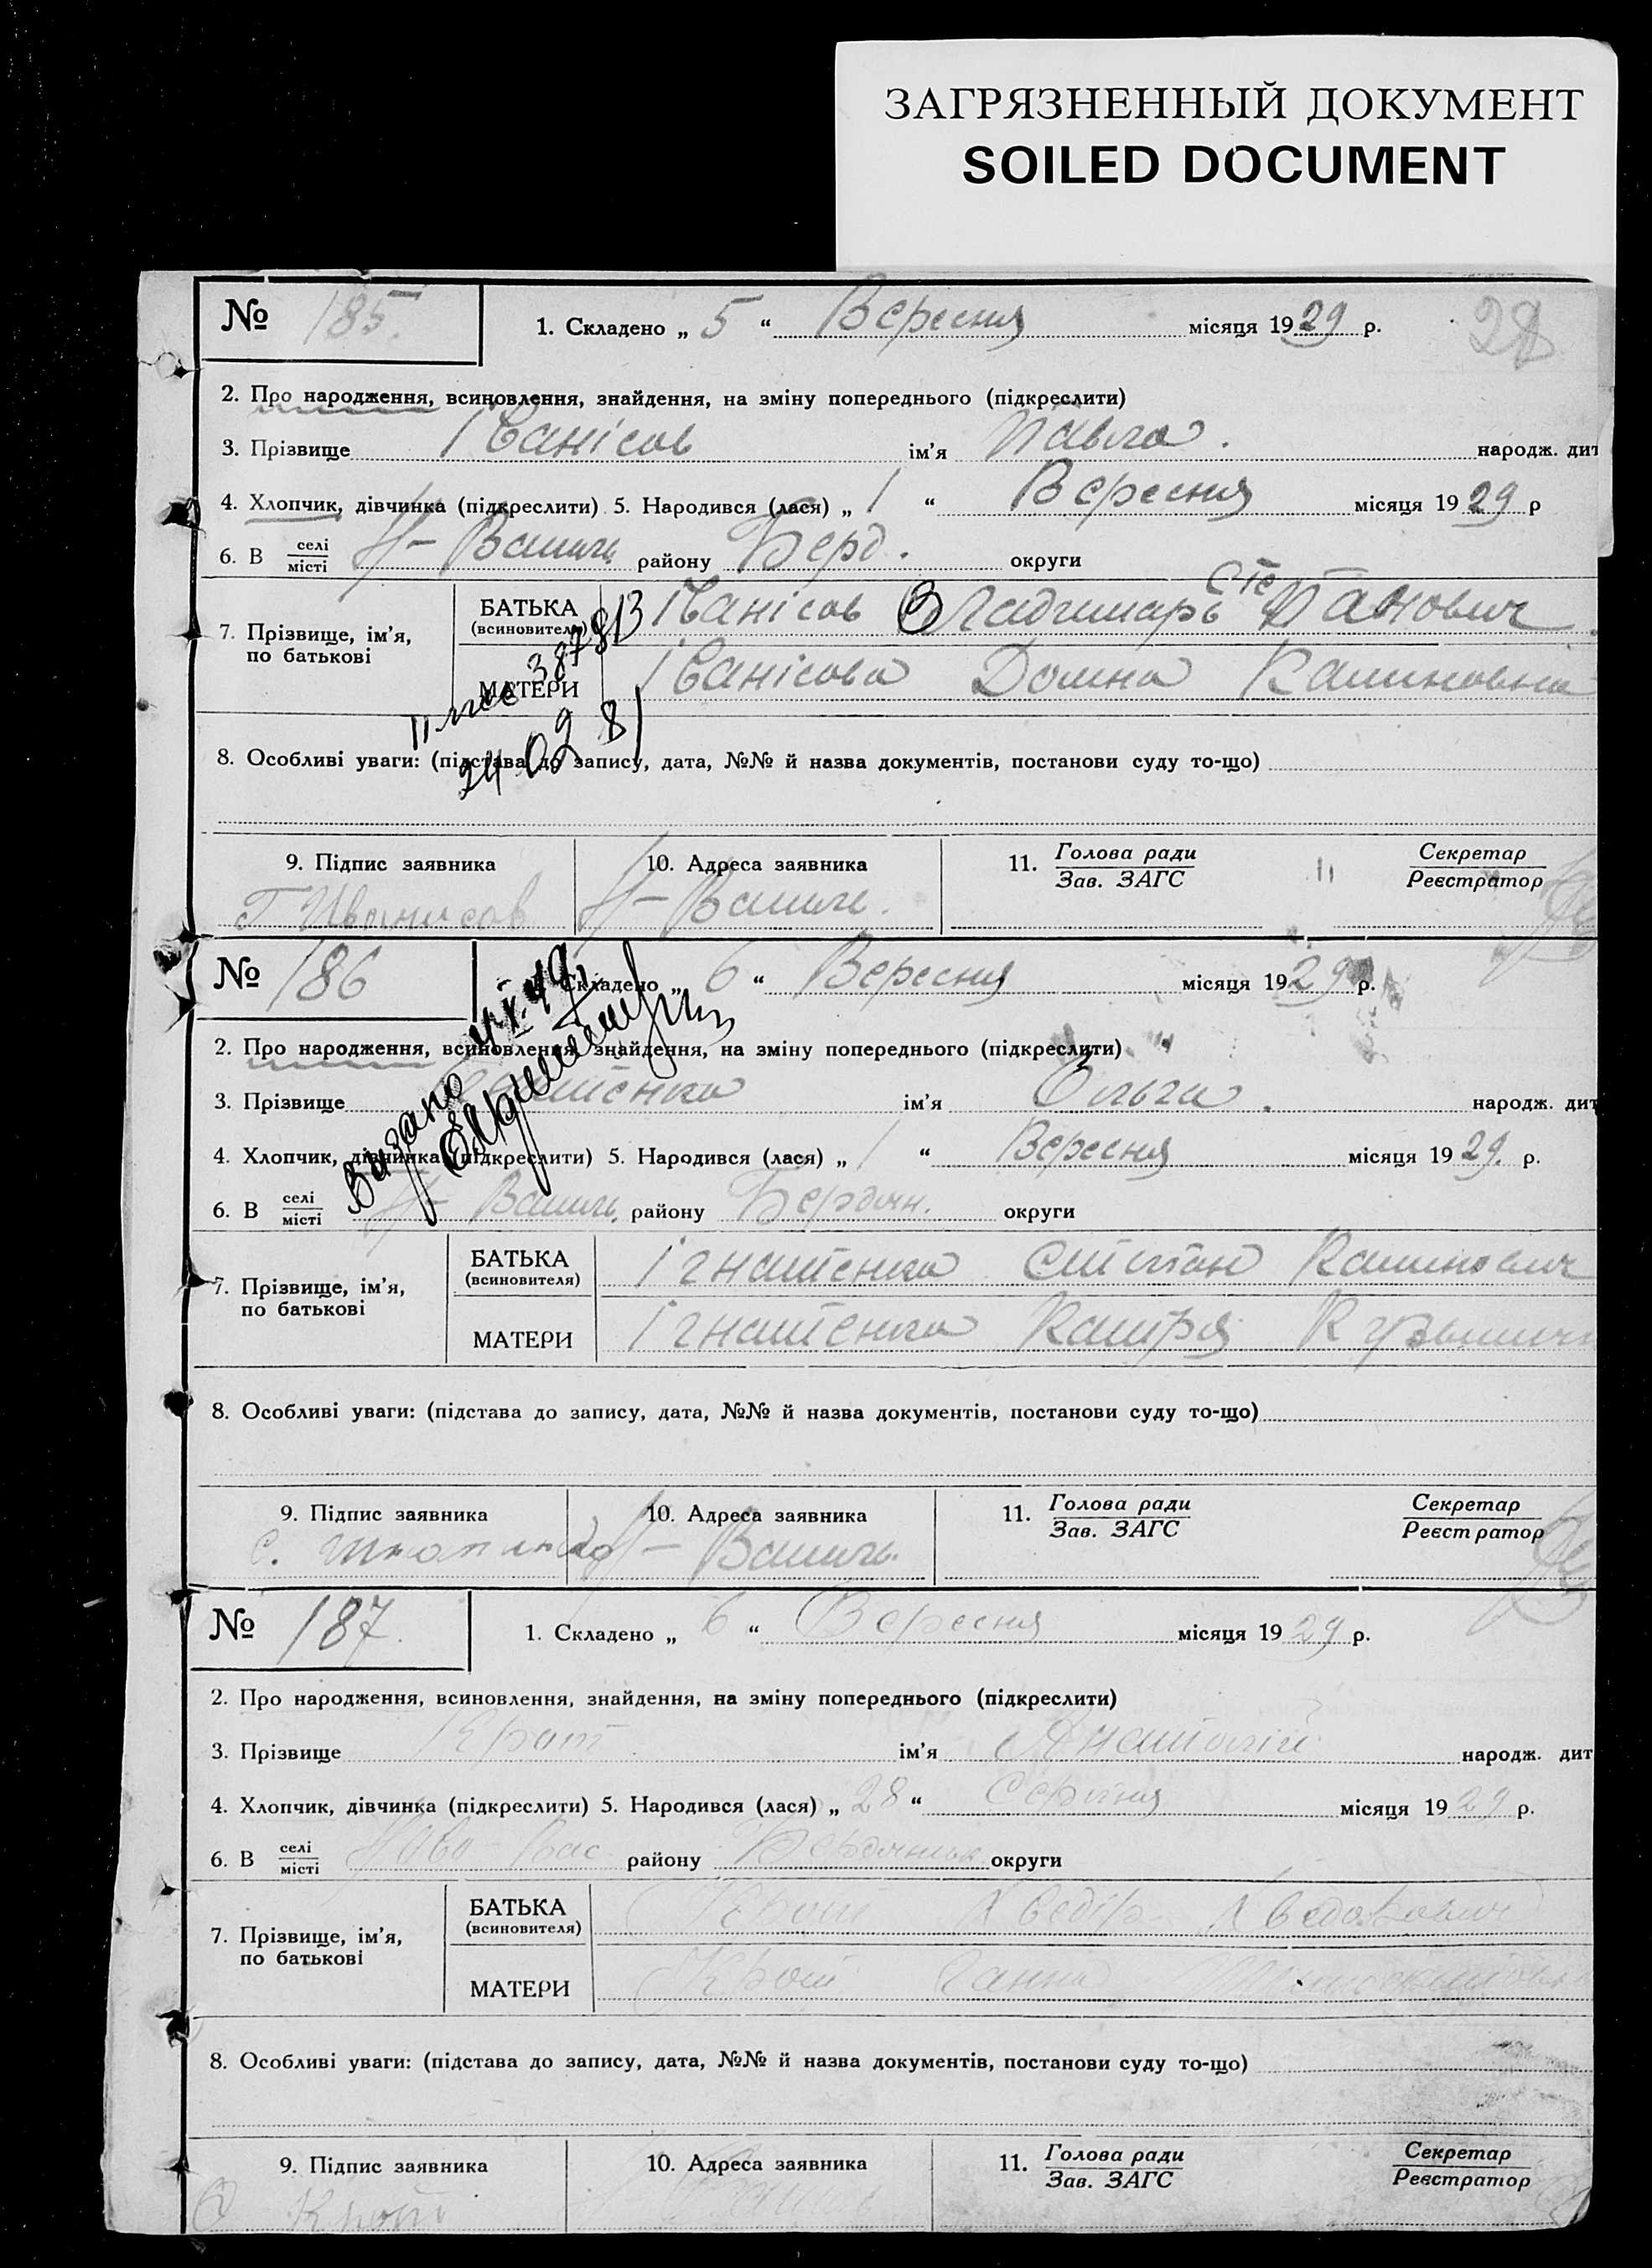 ЗАГРЯЗНЕННЫЙ ДОКУМЕНТ
SOILED DOCUMENT
28
№ 185. 1. Складено „ 5 “ Вересня місяця 1929 р.
2. Про народження, всиновлення, знайдення, на зміну попереднього (підкреслити)
3. Прізвище Іванісов ім'я Павло. народж. дит
4. Хлопчик, дівчинка (підкреслити) 5. Народився (лася) „ 1 “ Вересня місяця 1929 р
6. В селі/місті Н- Васил. району Берд. округи
7. Прізвище, ім'я, по батькові
БАТЬКА (всиновителя) Іванісов Владимирь Степанович
МАТЕРИ Іванісова Домна Калиновна
24 02 81
8. Особливі уваги: (підстава до запису, дата, №№ й назва документів, постанови суду то-що)
9. Підпис заявника 10. Адреса заявника 11. Голова ради/Зав. ЗАГС Секретар/Реєстратор
Иванисов Н- Васил.
№ 186 1. Складено „ 6 “ Вересня місяця 1929 р.
2. Про народження, всиновлення, знайдення, на зміну попереднього (підкреслити)
3. Прізвище ім'я Ольга. народж. дит
4. Хлопчик, дівчинка (підкреслити) 5. Народився (лася) „ 1 “ Вересня місяця 1929. р.
6. В селі/місті Н- Васил. району Бердян. округи
7. Прізвище, ім'я, по батькові
БАТЬКА (всиновителя) Ігнатенко Степан Калинович
МАТЕРИ Ігнатенко Катря
8. Особливі уваги: (підстава до запису, дата, №№ й назва документів, постанови суду то-що)
9. Підпис заявника 10. Адреса заявника 11. Голова ради/Зав. ЗАГС Секретар/Реєстратор
с. Н- Васил.
№ 187. 1. Складено „ 6 “ Вересня місяця 1929 р.
2. Про народження, всиновлення, знайдення, на зміну попереднього (підкреслити)
3. Прізвище Крот ім'я Анатолій народж. дит
4. Хлопчик, дівчинка (підкреслити) 5. Народився (лася) „ 28 “ Серпня місяця 1929 р.
6. В селі/місті Ново-Вас району Бердянськ округи
7. Прізвище, ім'я, по батькові
БАТЬКА (всиновителя) Крот Хведір Хведорович
МАТЕРИ Крот Ганна
8. Особливі уваги: (підстава до запису, дата, №№ й назва документів, постанови суду то-що)
9. Підпис заявника 10. Адреса заявника 11. Голова ради/Зав. ЗАГС Секретар/Реєстратор
Крот